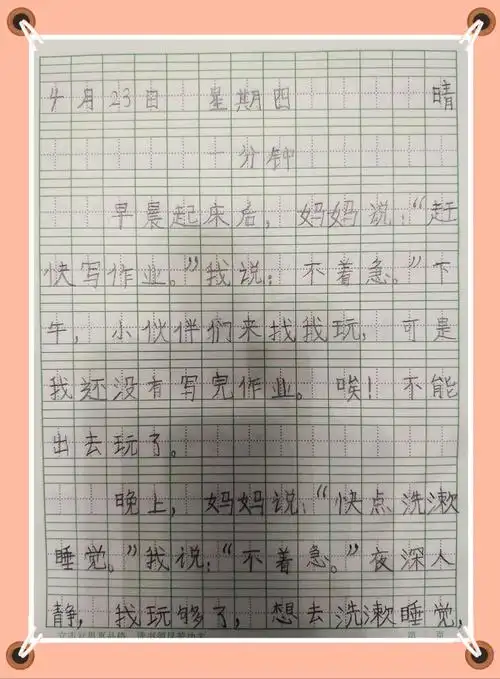 4月23日 星期四 晴
一分钟
早晨起床后，妈妈说：“赶
快写作业。”我说：不着急。”下
午，小伙伴们来找我玩，可是
我还没有写完作业。唉！不能
出去玩了。
晚上，妈妈说：“快点洗漱
睡觉。”我说：“不着急。”夜深人
静，我玩够了，想去洗漱睡觉，